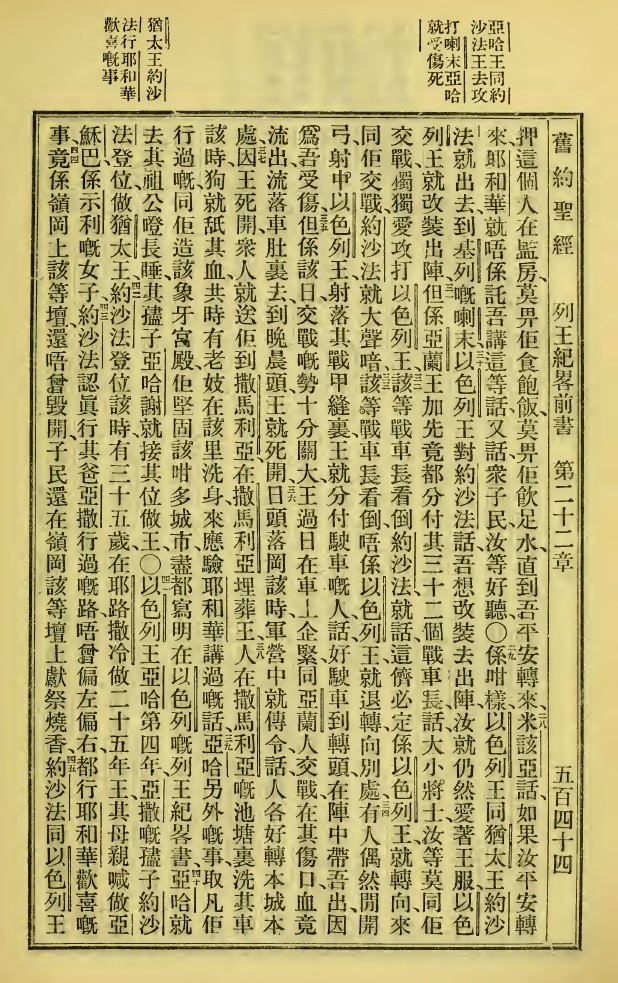 亞哈王同約
沙法王去攻
打喇末亞哈
就受傷死
猶太王約沙
法行耶和華
歡喜嘅事
舊約聖經　列王紀畧前書　第二十二章　五百四十四
押這個人在監房、莫畀佢食飽飯、莫畀佢飲足水、直到吾平安轉來、二八米該亞話、如果汝平安轉
來、耶和華就唔係託吾講這等話、又話、衆子民、汝等好聽、〇二九係咁樣以色列王同猶太王約沙
法就出去到基列嘅喇末、三十以色列王對約沙法話、吾想改裝去出陣、汝就仍然愛著王服、以色
列王就改裝出陣、三一但係亞蘭王加先竟都分付其三十二個戰車長話、大小將士、汝等莫同佢
交戰、獨獨愛攻打以色列王、三二該等戰車長看倒約沙法就話、這儕必定係以色列王、就轉向來
同佢交戰、約沙法就大聲喑、三三該等戰車長看倒唔係以色列王、就退轉向別處、三四有人偶然閒開
弓射中以色列王、射落其戰甲縫裏、王就分付駛車嘅人話、好駛車到轉頭、在陣中帶吾出、因
爲吾受傷、三五但係該日交戰嘅勢十分關大、王過日在車上企緊同亞蘭人交戰、在其傷口血竟
流出、流落車肚裏去、到晚晨頭王就死開、三六日頭落岡該時、軍營中就傳令話、人各好轉本城本
處、三七因王死開、衆人就送佢到撒馬利亞、在撒馬利亞埋葬王、三八人在撒馬利亞嘅池塘裏洗其車、
該時狗就舐其血、共時有老妓在該里洗身、來應驗耶和華講過嘅話、三九亞哈另外嘅事、取凡佢
行過嘅、同佢造該象牙宮殿、佢堅固該咁多城市、盡都寫明在以色列嘅列王紀畧書、四十亞哈就
去其祖公嶝長睡、其孻子亞哈謝就接其位做王、〇四一以色列王亞哈第四年、亞撒嘅孻子約沙
法登位做猶太王、四二約沙法登位該時有三十五歲、在耶路撒冷做二十五年王、其母親喊做亞
穌巴、係示利嘅女子、四三約沙法認眞行其爸亞撒行過嘅路、唔曾偏左偏右、都行耶和華歡喜嘅
事、四四竟係嶺岡上該等壇還唔曾毀開、子民還在嶺岡該等壇上獻祭燒香、四五約沙法同以色列王